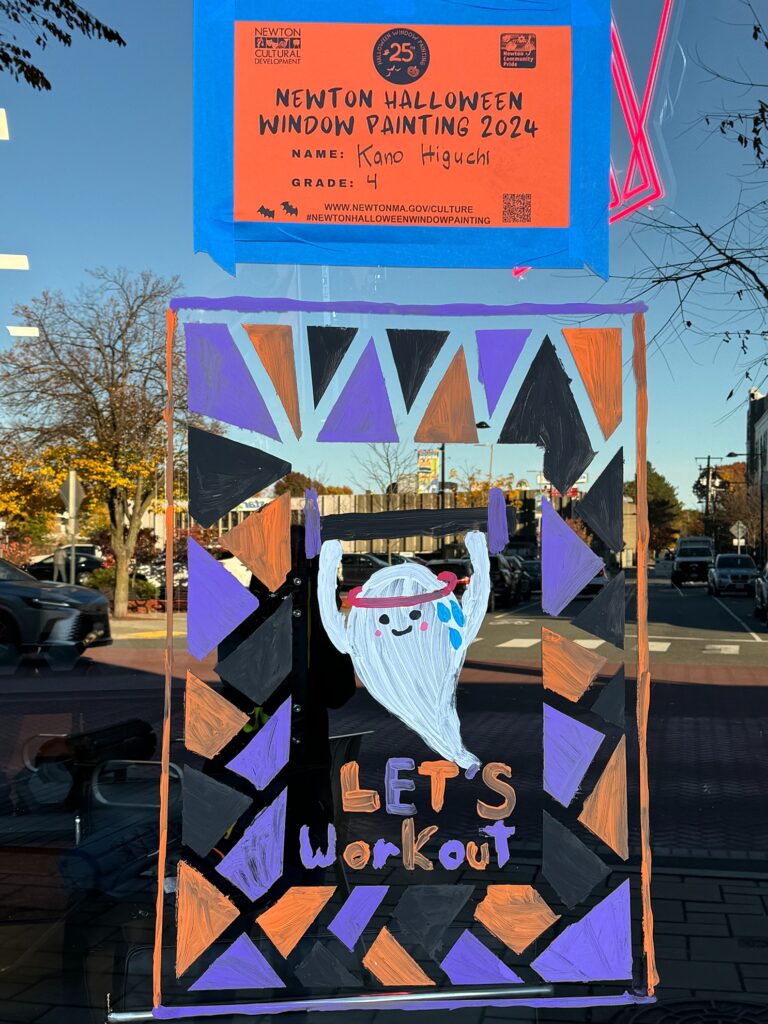 NEWTON
CULTURAL
DEVELOPMENT
HALLOWEEN WINDOW PAINTING
25TH
Newton
Community
Pride
NEWTON HALLOWEEN
WINDOW PAINTING 2024
NAME: Kano Higuchi
GRADE: 4
WWW.NEWTONMA.GOV/CULTURE
#NEWTONHALLOWEENWINDOWPAINTING
LET'S
WorKouT